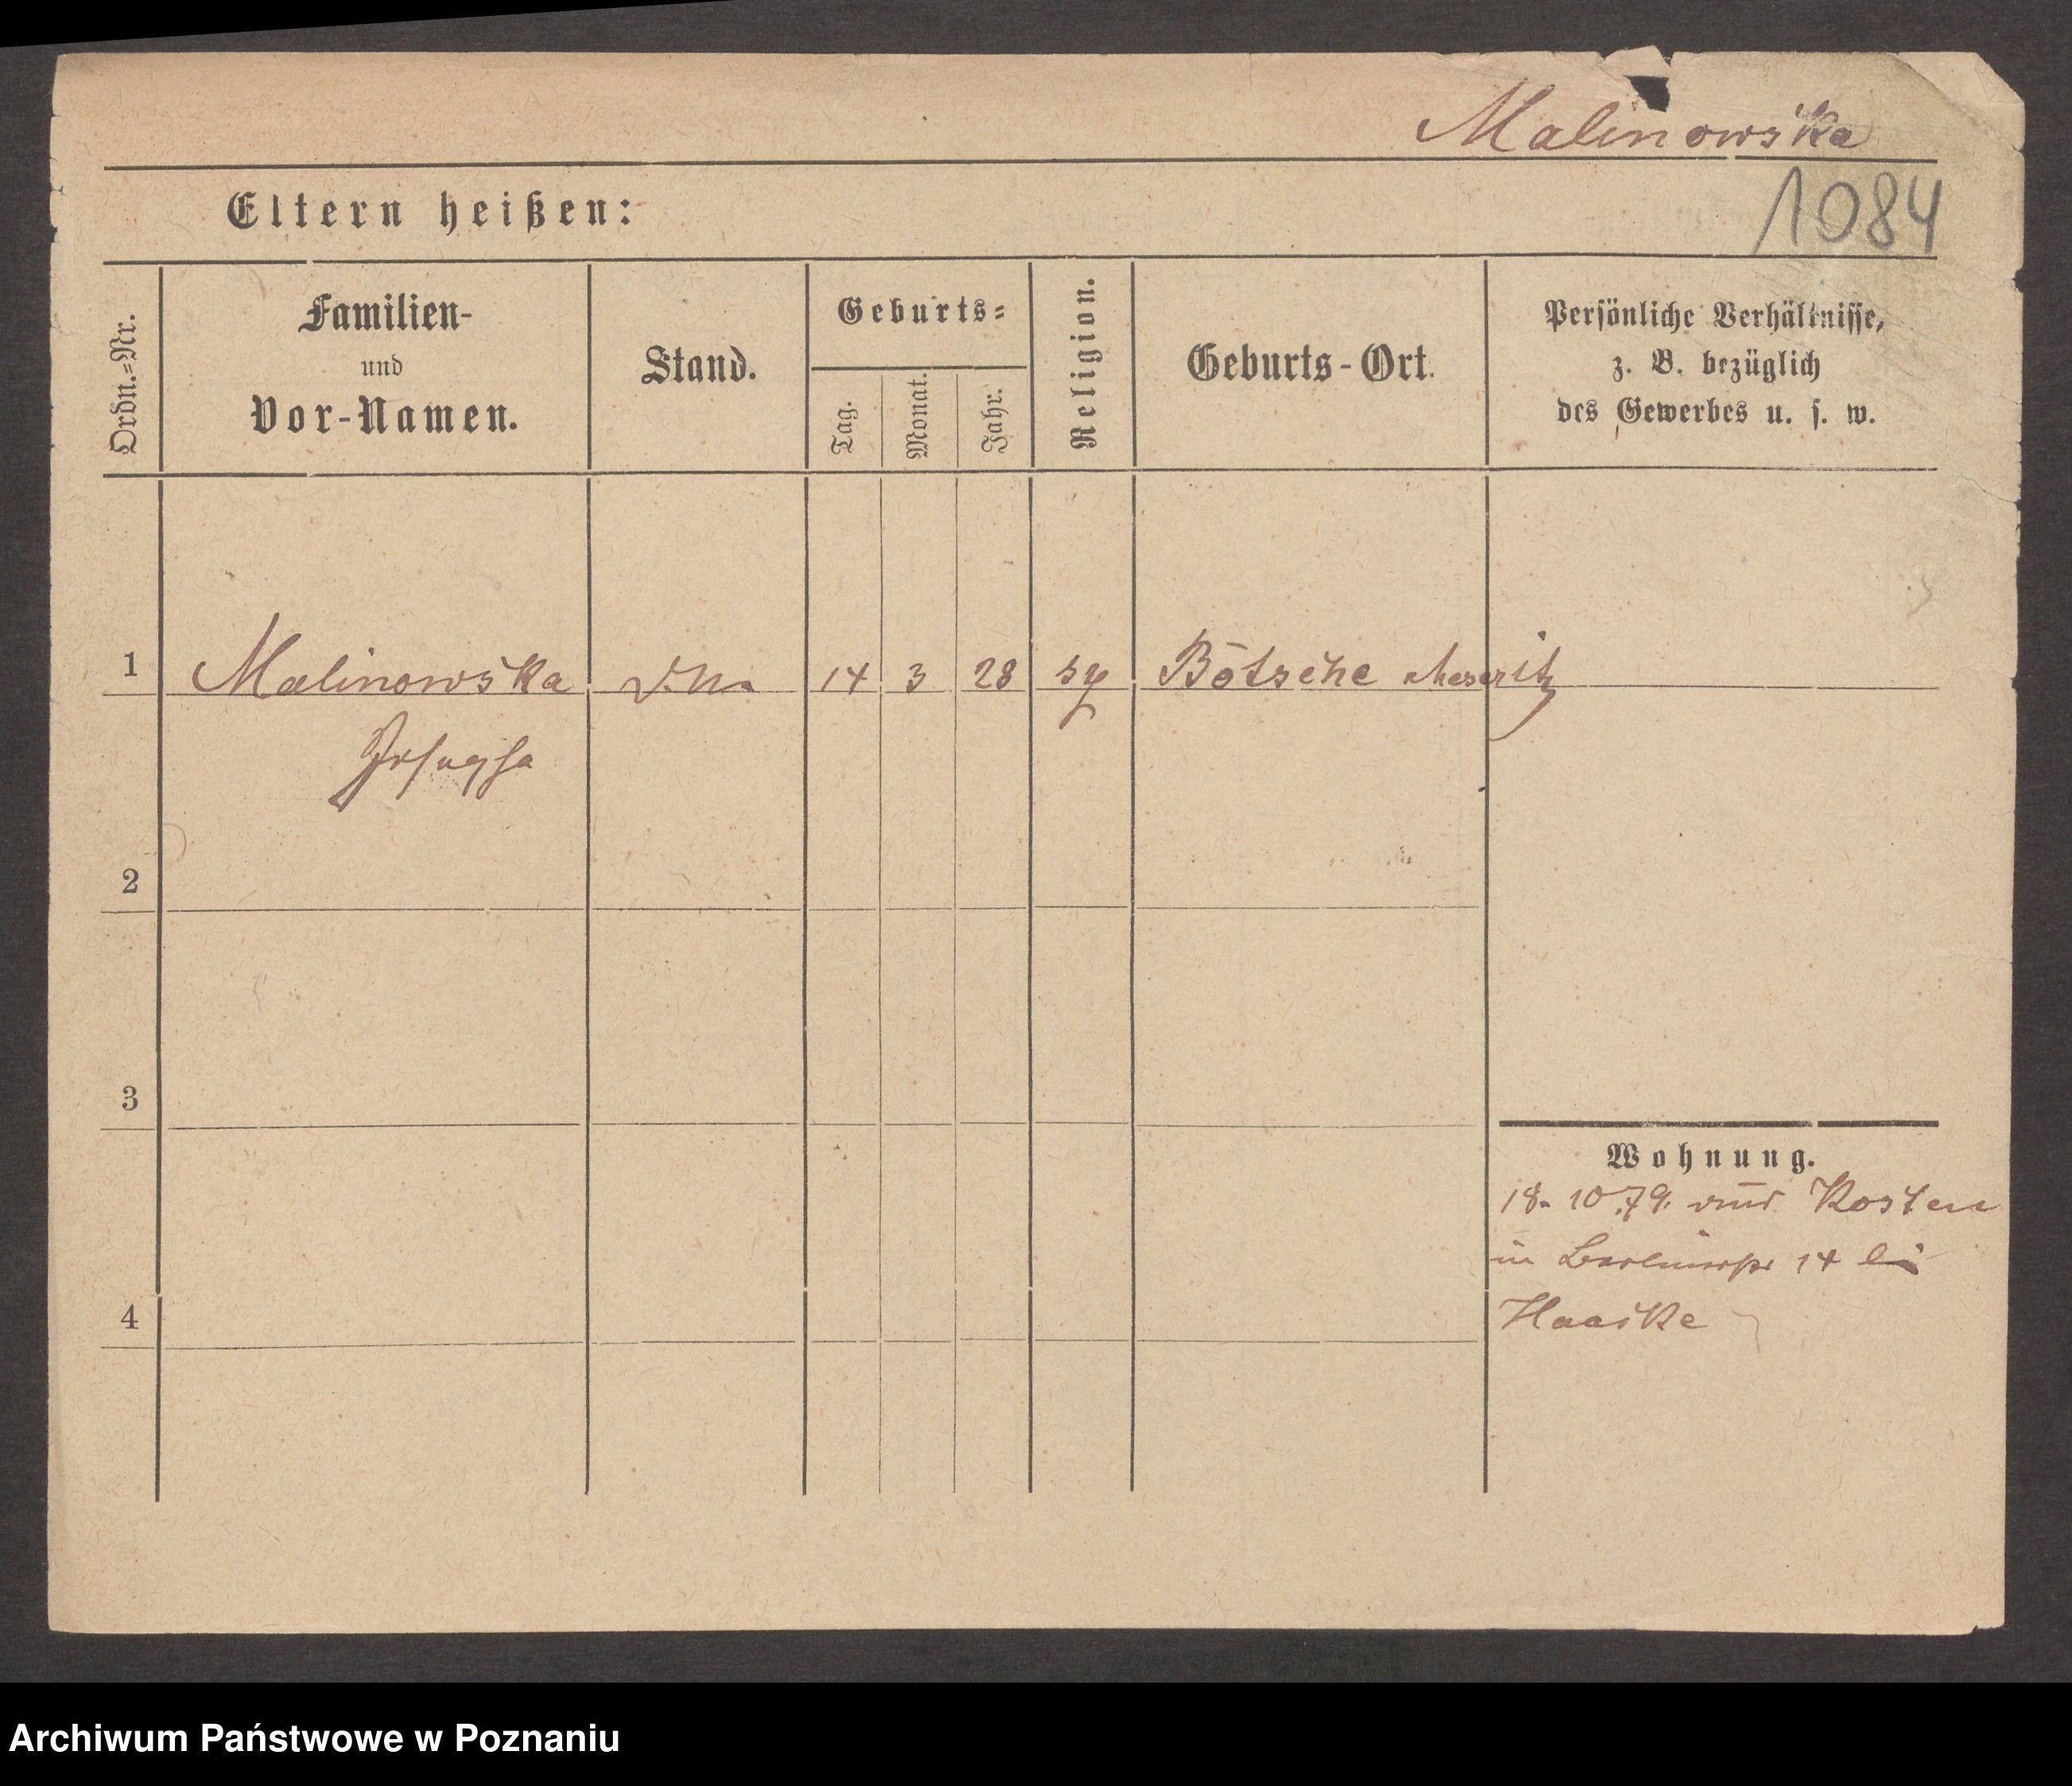 Malinowska
1084
Eltern heißen:
Ordn.=Nr.
Familien-
und
Vor-Namen.
Stand.
Geburts=
Tag.
Monat.
Jahr.
Religion.
Geburts-Ort.
Persönliche Verhältnisse,
z. B. bezüglich
des Gewerbes u. s. w.
1 Malinowska 14 3 28 Bötsche Meseritz
2
3
Wohnung.
18. 10 79. aus Kosten
in Berlinerstr 14 bei
Haaske
4
Archiwum Państwowe w Poznaniu